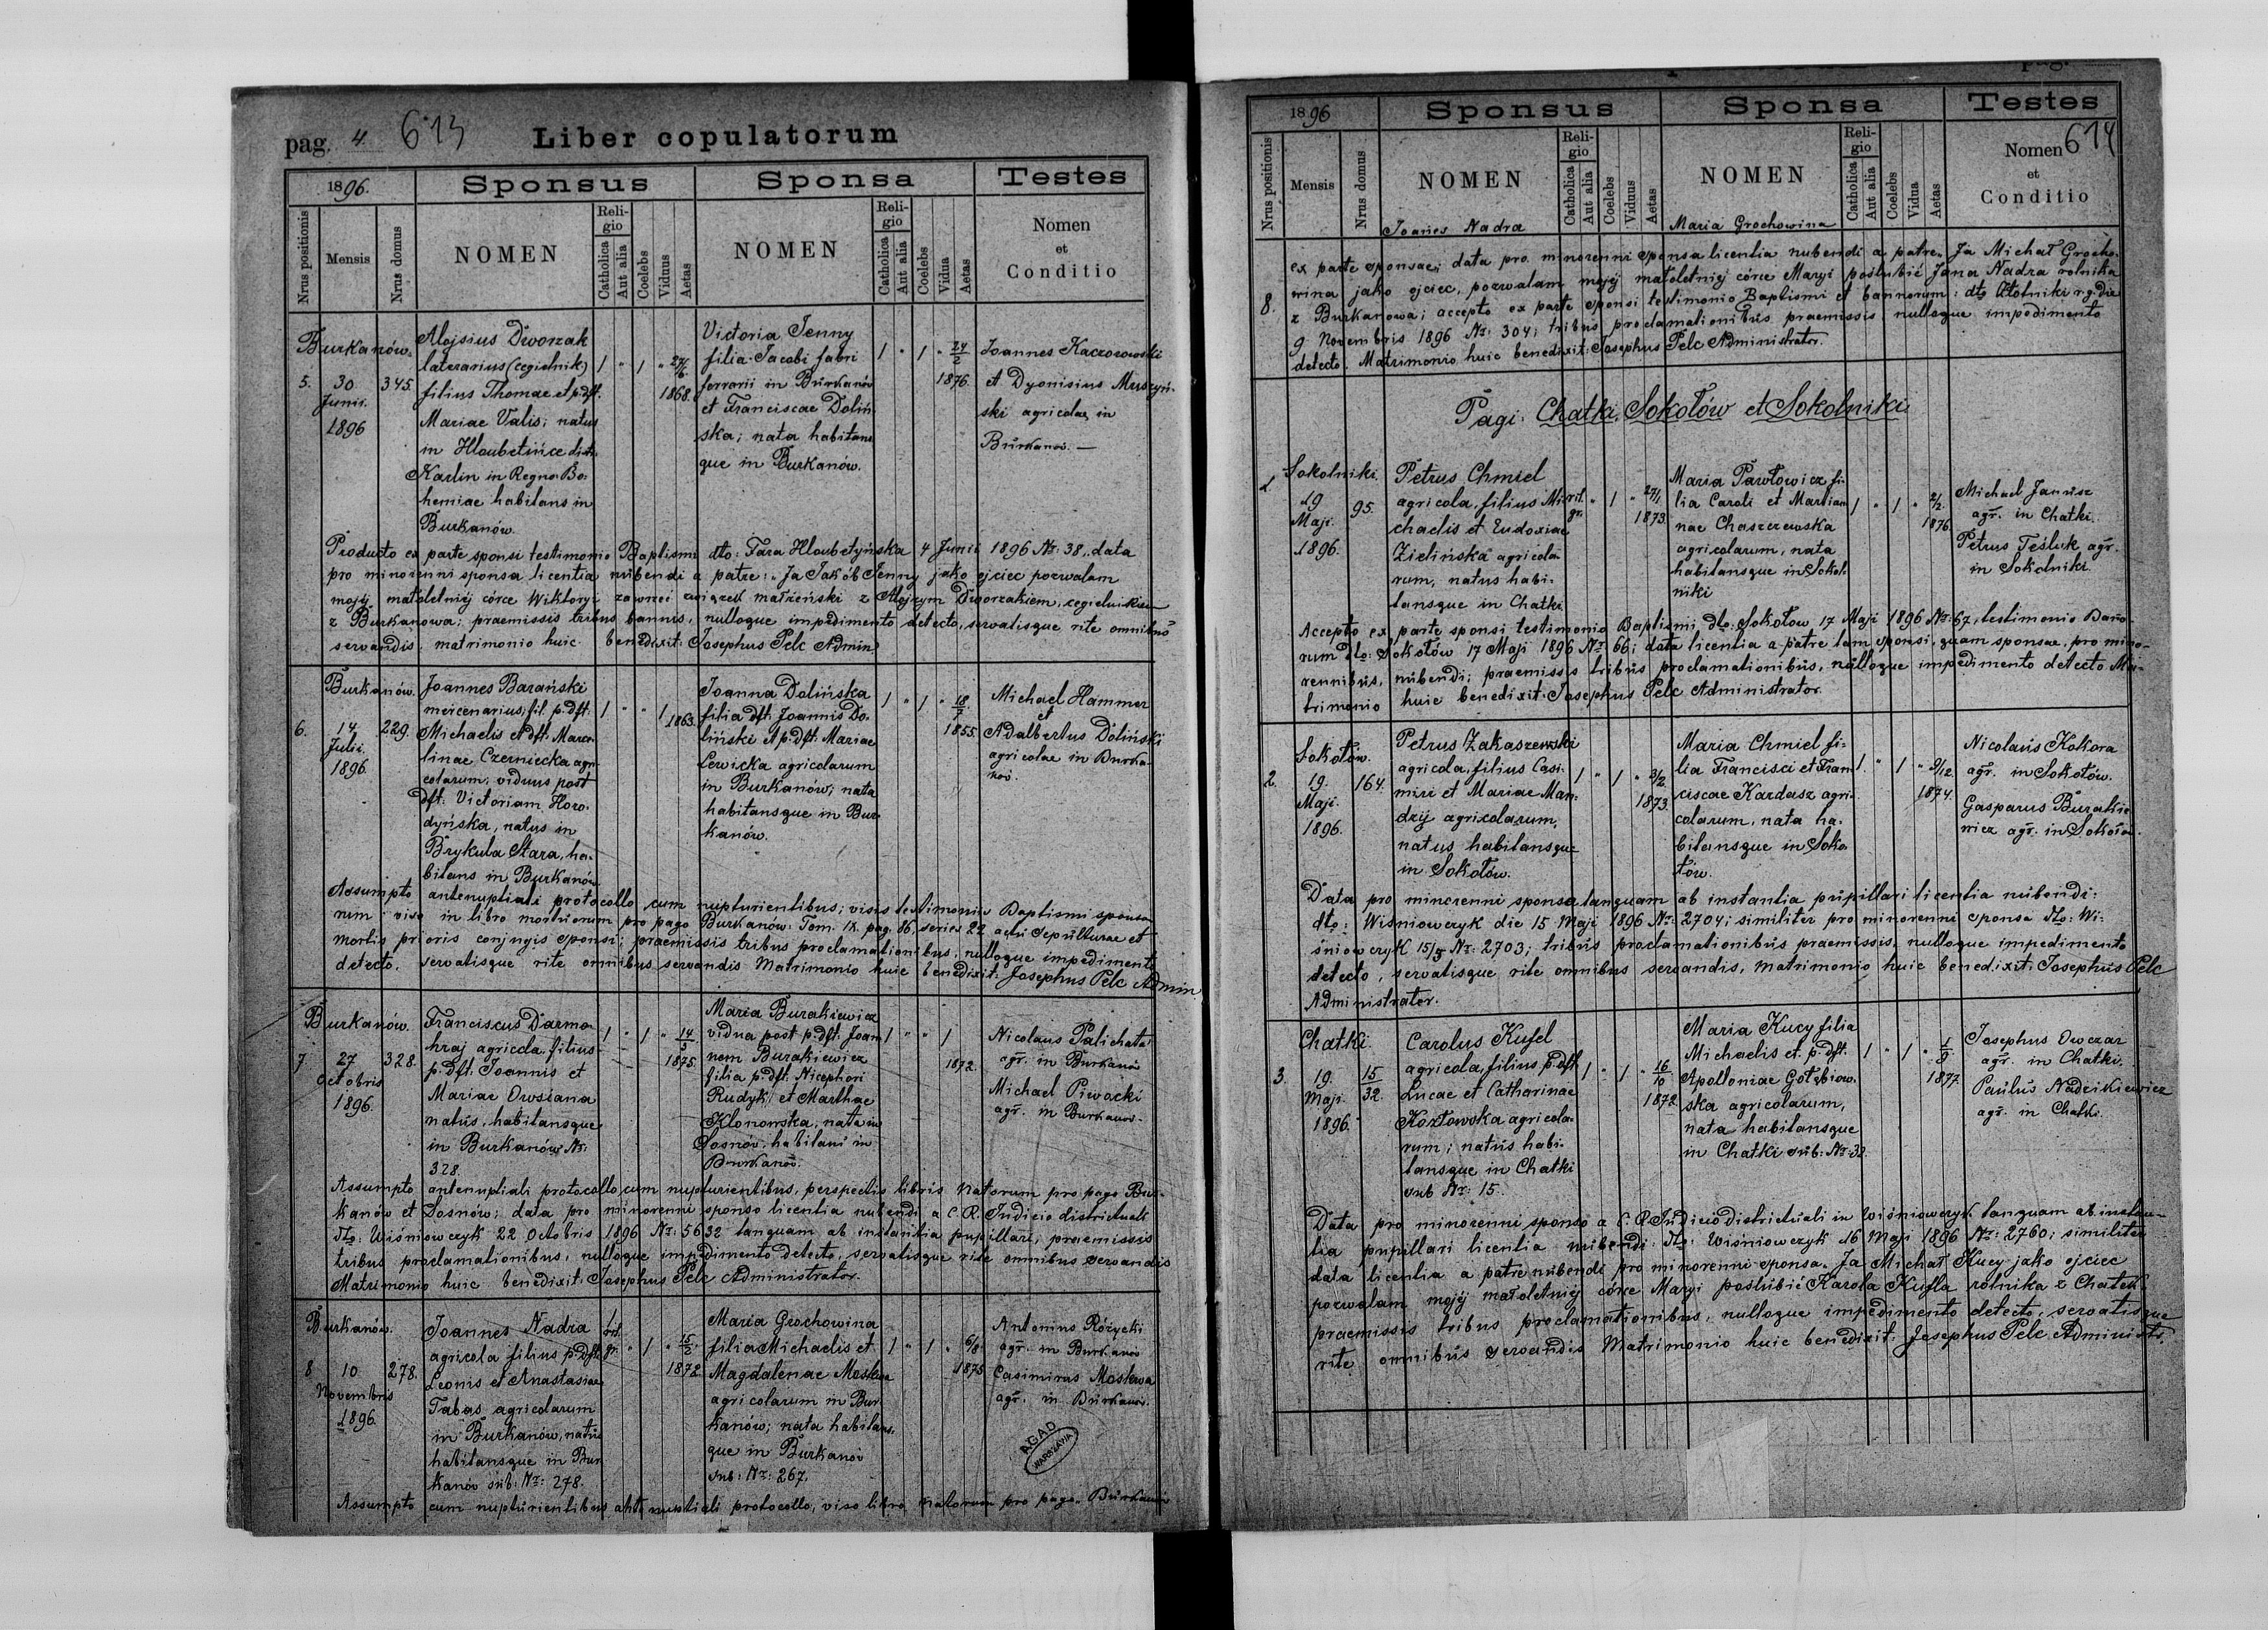 pag. 4. 613 Liber copulatorum
1896. Sponsus Sponsa Testes
Nrus positionis Mensis Nrus domus NOMEN Religio Catholica Aut alia Coelebs Viduus Aetas NOMEN Religio Catholica Aut alia Coelebs Vidua Aetas Nomen et Conditio
Burkanów.
5. 30 Junii. 1896
345.
Alojsius Dworzak
laterarius (cegielnik)
filius Thomae et p. dft.
Mariae Valis; natus
in Hloubetińce dist.
Karlin in Regno Bo-
hemiae habitans in
Burkanów.
1 " 1 " 27/6 1868.
Victoria Jenny
filia Jacobi fabri
ferrarii in Burkanów
et Franciscae Doliń-
ska; nata habitans
que in Burkanów.
1 " 1 " 24/2 1876.
Joannes Kaczorowski
et Dyonisius Muszyń-
ski agricolae in
Burkanów. —
Producto ex parte sponsi testimonio Baptismi dto: Fara Hloubetyńska 4 Junii 1896 Nr: 38, data
pro minorenni sponsa licentia nubendi a patre: „Ja Jakób Jenny jako ojciec pozwalam
mojéj małoletniéj córce Wiktoryi zawrzeć związek małżeński z Alojzym Dworzakiem, cegielnikiem
z Burkanowa; praemissis tribus bannis, nulloque impedimento detecto, servatisque rite omnibus
servandis matrimonio huic benedixit: Josephus Pelc Admin.
Burkanów.
6. 14 Julii. 1896.
229.
Joannes Barański
mercenarius, fil. p. dft.
Michaelis et dft. Marce-
linae Czerniecka agri-
colarum, viduus post
dft. Victoriam Horo-
dyńska, natus in
Brykula Stara, ha-
bitans in Burkanów.
1 " " 1 1863.
Joanna Dolińska
filia dft. Joannis Do-
liński et p. dft. Mariae
Lewicka agricolarum
in Burkanów; nata
habitansque in Bur-
kanów.
1 " 1 " 18/7 1855.
Michael Hammer
et
Adalbertus Doliński
agricolae in Burka-
nów.
Assumpto antenuptiali protocollo cum nupturientibus; visis testimoniis Baptismi sponso-
rum; viso in libro mortuorum pro pago Burkanów: Tom. IX. pag. 86, series 22 actu sepulturae et
mortis prioris conjugis sponsi; praemissis tribus proclamationibus, nulloque impedimento
detecto, servatisque rite omnibus servandis Matrimonio huic benedixit: Josephus Pelc Admin.
Burkanów.
7. 27 Octobris 1896.
328.
Franciscus Darmo-
hraj agricola filius
p. dft. Joannis et
Mariae Owsiana
natus, habitansque
in Burkanów Nr:
328.
1 " 1 " 14/3 1875.
Maria Burakiewicz
vidua post p. dft. Joan-
nem Burakiewicz
filia p. dft. Nicephori
Rudyk et Marthae
Klonowska, nata in
Sosnów, habitans in
Burkanów.
1 " " 1 1872.
Nicolaus Palichata
agr. in Burkanów
Michael Piwocki
agr. in Burkanów.
Assumpto antenuptiali protocollo cum nupturientibus, perspectis libris Natorum pro pago Bur-
kanów et Sosnów; data pro minorenni sponso licentia nubendi a C. R. Judicio districtuali
dto: Wiśniowczyk 22 Octobris 1896 Nr: 5632 tanquam ab instantia pupillari, praemissis
tribus proclamationibus, nulloque impedimento detecto, servatisque rite omnibus servandis
Matrimonio huic benedixit: Josephus Pelc Administrator.
Burkanów.
8 10 Novembris 1896.
278.
Joannes Nadra
agricola filius p. dft.
Leonis et Anastasiae
Tabas agricolarum
in Burkanów, natus
habitansque in Bur-
kanów sub: Nr: 278.
rit. gr. " 1 " 15/2 1872
Maria Grochowina
filia Michaelis et
Magdalenae Moskwa
agricolarum in Bur-
kanów; nata habitans-
que in Burkanów
sub: Nr: 267.
1 " 1 " 6/8 1875
Antonius Różycki
agr. in Burkanów
Casimirus Moskwa
agr. in Burkanów.
AGAD
WARSZAWA
Assumpto cum nupturientibus antenuptiali protocollo, viso libro natorum pro pago Burkanów
1896 Sponsus Sponsa Testes
614
Nrus positionis Mensis Nrus domus NOMEN Religio Catholica Aut alia Coelebs Viduus Aetas NOMEN Religio Catholica Aut alia Coelebs Vidua Aetas Nomen et Conditio
Joanes Nadra Maria Grochowina
8.
ex parte sponsae; data pro minorenni sponsa licentia nubendi a patre „Ja Michał Grocho-
wina jako ojciec, pozwalam mojéj małoletniéj córce Maryi poślubić Jana Nadra rolnika
z Burkanowa; accepto ex parte sponsi testimonio Baptismi et bannorum: dto Złotniki r. g. die
9 Novembris 1896 Nr: 304; tribus proclamationibus praemissis, nulloque impedimento
detecto. Matrimonio huic benedixit: Josephus Pelc Administrator.
Pagi: Chatki, Sokołów et Sokolniki
Sokolniki.
1. 19 Maji. 1896.
95.
Petrus Chmiel
agricola, filius Mi-
chaelis et Eudoxiae
Zielińska agricola-
rum, natus habi-
tansque in Chatki
rit. gr. " 1 " 27/1 1873.
Maria Pawłowicz fi-
lia Caroli et Marian-
nae Chaszczewska
agricolarum, nata
habitansque in Sokol-
niki
1 " 1 " 2/2 1876.
Michael Janusz
agr. in Chatki.
Petrus Teśluk agr.
in Sokolniki
Accepto ex parte sponsi testimonio Baptismi dto: Sokołow 17 Maji 1896 Nr: 67, testimonio Banno-
rum dto: Sokołów 17 Maji 1896 Nr: 66; data licentia a patre tam sponsi, quam sponsae, pro mino-
rennibus, nubendi; praemissis tribus proclamationibus, nulloque impedimento detecto Ma-
trimonio huic benedixit: Josephus Pelc Administrator.
Sokołów.
2. 19. Maji. 1896.
164.
Petrus Zakaszewski
agricola, filius Casi-
miri et Mariae Man-
dzij agricolarum,
natus habitansque
in Sokołów.
1 " 1 " 3/2 1873.
Maria Chmiel fi-
lia Francisci et Fran-
ciscae Kardasz agri-
colarum, nata ha-
bitansque in Soko-
łów.
1. " 1 " 9/12. 1874.
Nicolaus Kokora
agr. in Sokołów.
Gasparus Burakie-
wicz agr. in Sokołów.
Data pro minorenni sponsa tanquam ab instantia pupillari licentia nubendi:
dto: Wiśniowczyk die 15 Maji 1896 Nr: 2704; similiter pro minorenni sponsa dto: Wi-
śniowczyk 15/5 Nr: 2703; tribus proclamationibus praemissis, nulloque impedimento
detecto, servatisque rite omnibus servandis, Matrimonio huic benedixit: Josephus Pelc
Administrator.
Chatki.
3. 19. Maji. 1896.
15/32.
Carolus Kufel
agricola, filius p. dft.
Lucae et Catharinae
Kozłowska agricola-
rum; natus habi-
tansque in Chatki
sub Nr: 15.
1 " 1 " 16/10 1872
Maria Kucy filia
Michaelis et p. dft.
Apolloniae Gołębiow-
ska agricolarum,
nata habitansque
in Chatki sub: Nr: 32.
1 " 1 " 1/8 1877.
Josephus Owczar
agr. in Chatki.
Paulus Nadzikiewicz
agr. in Chatki.
Data pro minorenni sponso a C. R. Judicio districtuali in Wiśniowczyk tanquam ab instan-
tia pupillari licentia nubendi: dto: Wiśniowczyk 16 Maji 1896 Nr: 2760; similiter
data licentia a patre nubendi pro minorenni sponsa „Ja Michał Kucy jako ojciec
pozwalam mojéj małoletniéj córce Maryi poślubić Karola Kufla rolnika z Chatek
praemissis tribus proclamationibus, nulloque impedimento detecto, servatisque
rite omnibus servandis Matrimonio huic benedixit: Josephus Pelc Administr.